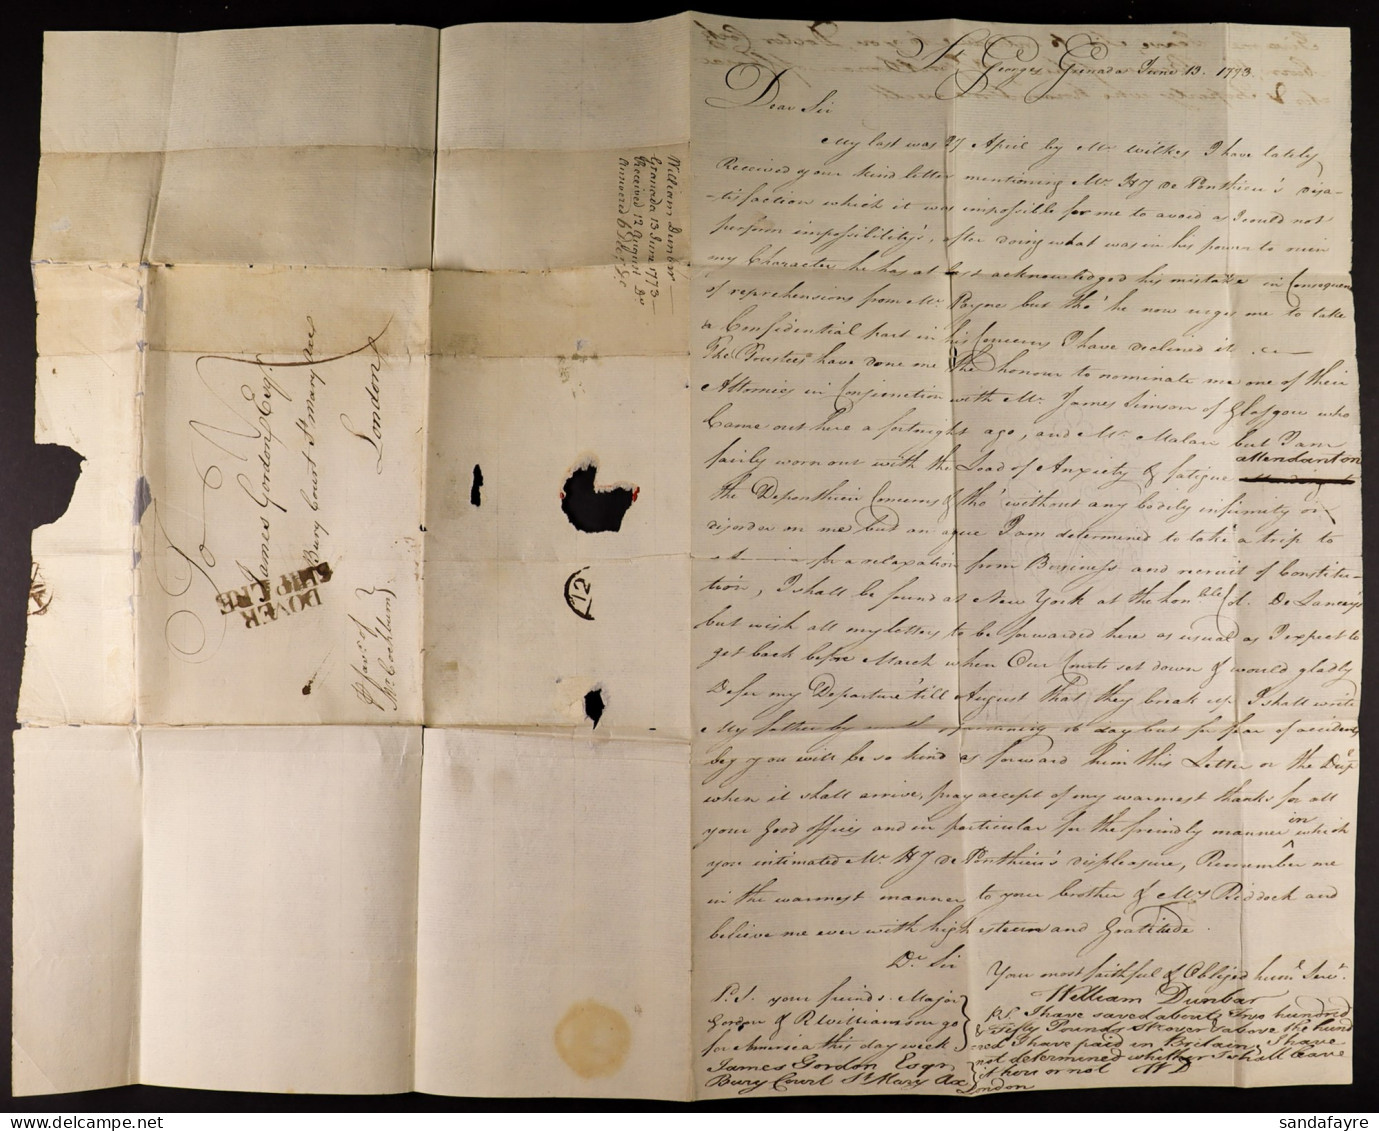 St. Georges Grenada June 13. 1773.
Dear Sir
My last was 27 April by Mr Wilkes I have lately
Received your kind letter mentioning Mr. HJ De Ponthieu's dissa-
-tisfaction which it was impossible for me to avoid as I could not
perform impossibility's, after doing what was in his power to ruin
my Character he has at last acknowledged his mistake in Consequence
of reprehensions from Mr Payne but tho' he now urges me to take
a Confidential part in his Concerns I have declined it
The Trustees have done me the honour to nominate me one of their
Attornies in Conjunction with Mr. James Simson of Glasgow who
Came out here a fortnight ago, and Mr Malan but I am
fairly worn out with the Load of Anxiety & fatigue attendant on
the Deponthieu Concerns & tho' without any bodily infirmity or
disorder on me but an ague I am determined to take a trip to
for a relaxation from Business and recruit of Constitu-
tion, I shall be found at New York at the honble Col. De Lancey's
but wish all my letters to be forwarded here as usual as I expect to
get back before March when Our Courts set down & would gladly
Defer my Departure 'till August that they break up. I shall write
My father by opportunity to day but for fear of accidents
beg you will be so kind as forward him this Letter or the Dupe
when it shall arrive, pray accept of my warmest thanks for all
your Good offices and in particular for the friendly manner in which
you intimated Mr HJ de Ponthieu's displeasure, Remember me
in the warmest manner to your brother & Mrs Riddock and
believe me ever with high esteem and Gratitude
Dr Sir
Your most faithful & Obliged huml Servt.
William Dunbar
P.S. your friends Major
Gordon & R Williamson go
for America this day week
James Gordon Esqr
Bury Court St Mary Ax
London
P.S. I have saved about Two hundred
& Fifty Pounds St over & above the hund
red I have paid in Britain, I have
not determined whether I shall leave
it here or not WD
William Dunbar
Granada 13 June 1773
Received 12 August Do
Answered 6
To
James Gordon Esqr.
Bury Court St mary axe
London
P favr of
Mr Cockburn
DOVER
SHIP LRE
12